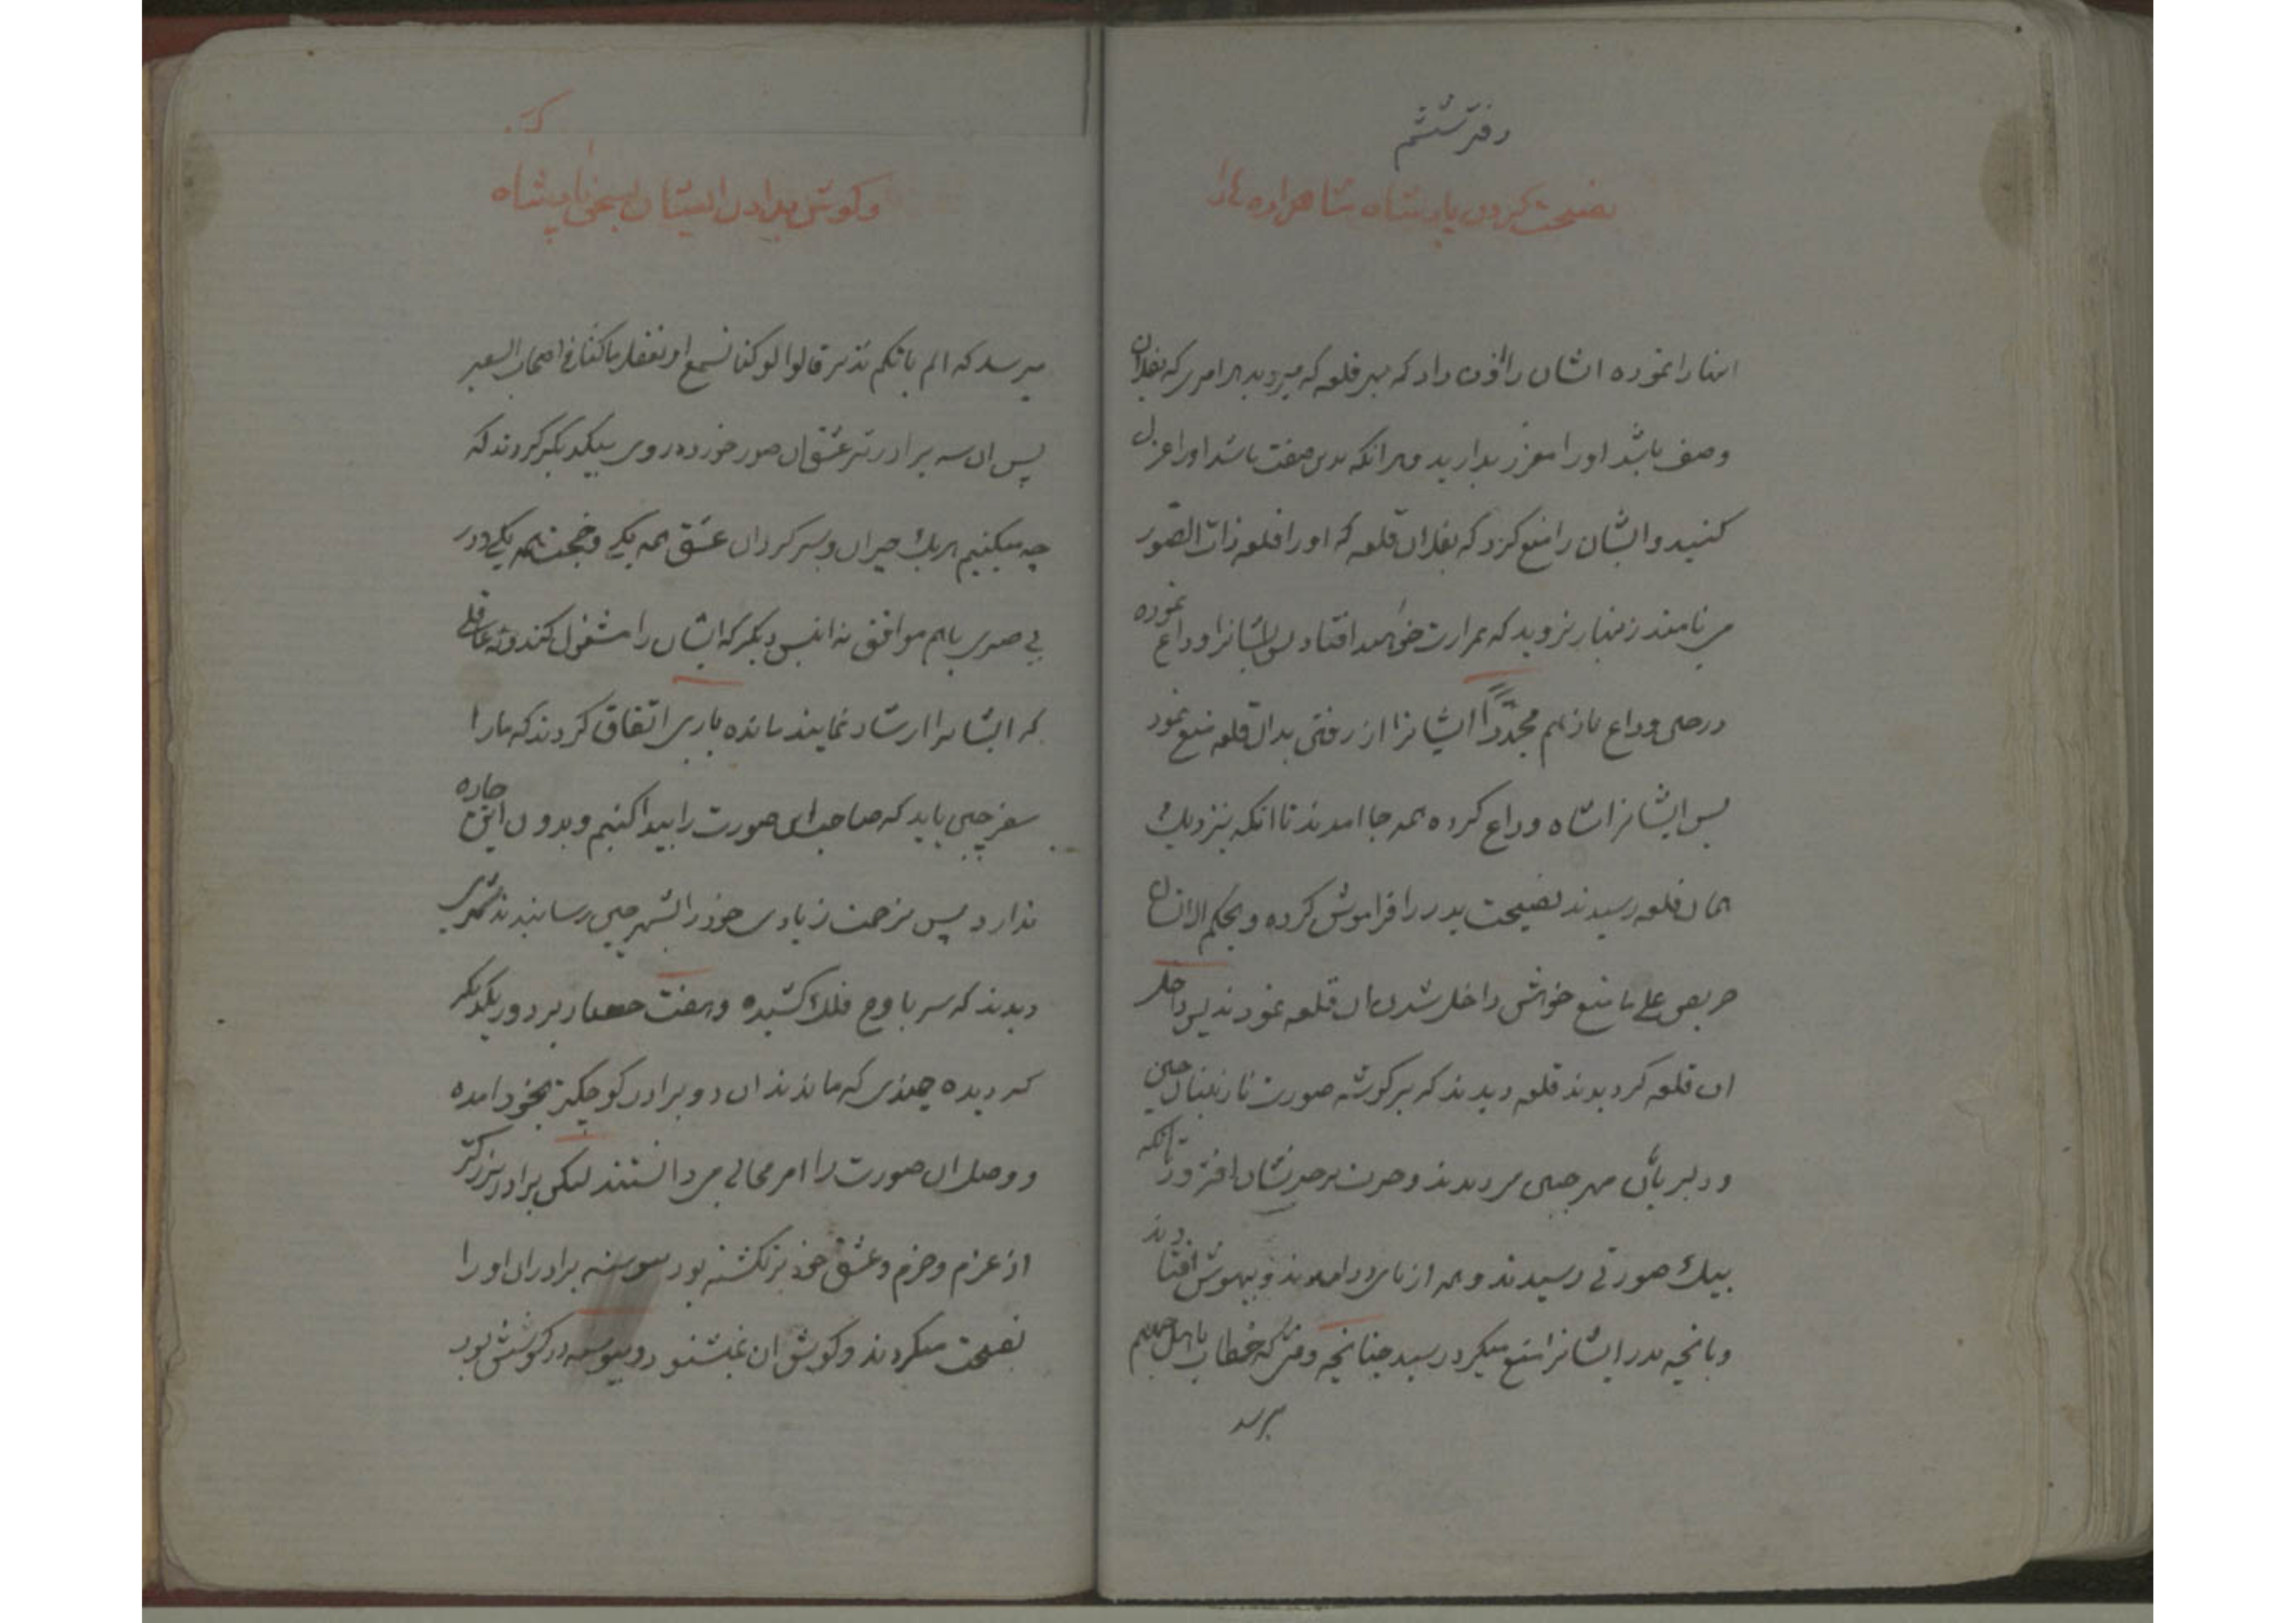 دفتر ششم
نصیحت کردن پادشاه شاهزاده ها را
ایشانرا نموده ایشان را اذن داد که بهر قلعه که میروید هر امیری که بفلان
وصف باشد اورا معزز بدارید و هر انکه بدین صفت باشد اورا عزل
کنید و ایشان را منع کرد که بفلان قلعه که اورا قلعه ذات الصور
می نامند زینهار نروید که بمرارت خواهید افتاد پس ایشانرا وداع نموده
در حین وداع باز هم مجدداً ایشانرا از رفتن بدان قلعه منع نمود
پس ایشانرا شاه وداع کرده همه جا امدند تا انکه بنزدیک
همان قلعه رسیدند نصیحت پدر را فراموش کرده و بحکم الانسان
حریص علی ما منع خواهش داخل شدن ان قلعه نمودند پس داخل
ان قلعه کردیدند قلعه دیدند که بر کوشه صورت نازنینان چین
و دلبریای مهر جبین می دیدند و حیرت بر حیرتشان افزود تا انکه
بیک صورتی رسیدند و همه از پای در امدند و بیهوش افتادند
و بانچه پدر ایشانرا منع میکرد رسید چنانچه وقتی که خطاب باهل جهنم
میرسد
و کوش ندادن ایشان بسخن پادشاه
میرسد که الم یاتکم نذیر قالوا لو کنا نسمع او نعقل ما کنا فی اصحاب السعیر
پس ان سه برادر تیر عشق ان صور خورده روی بیکدیکر کردند که
چه میکنیم هر یک حیران و سرکردان عشق همه یکی و حجت همه یکی و در
بی صبری باهم موافق نه انیس دیکر که ایشان را مشغول کند و نه عاقلی
که ایشانرا ارشاد نمایند مانده باری اتفاق کردند که مارا
سفر چین باید که صاحب این صورت را پیدا کنیم و بدون این چاره
ندارد پس بزحمت زیادی خود را بشهر چین رسانیدند شهری
دیدند که سر باوج فلک کشیده و هفت حصار بر دور یکدیکر
کردیده چندی که ماندند ان دو برادر کوچکتر بخود امده
و وصل ان صورت را امر محالی می دانستند لیکن برادر بزرکتر
از عزم و جزم و عشق خود برنکشته بود پیوسته برادران اورا
نصیحت میکردند و کوش ان نمیشنود و پیوسته در کوشش بود